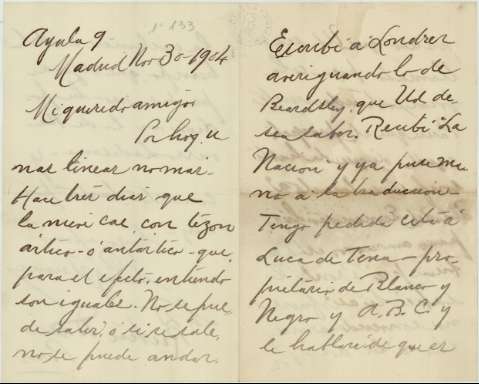 Ayala 9.
Madrid Nov 30-1904
Mi querido amigo:
Por hoy, u
nas lineas no mas.
Hace tres dias que
la nieve cae, con tezon
ártico - ó antartico - que,
para el efecto, entiendo
son iguales. No se pue
de salir, ó si se sale,
no se puede andar.
Escribí á Londres
averiguando lo de
Beardsley que Ud de
sea saber. Recibí "La
Nacion" y ya puse ma
no á la traduccion.
Tengo pedida cita á
Luca de Tena - pro
pietario de Blanco y
Negro y A.B.C. y
le hablaré de que es